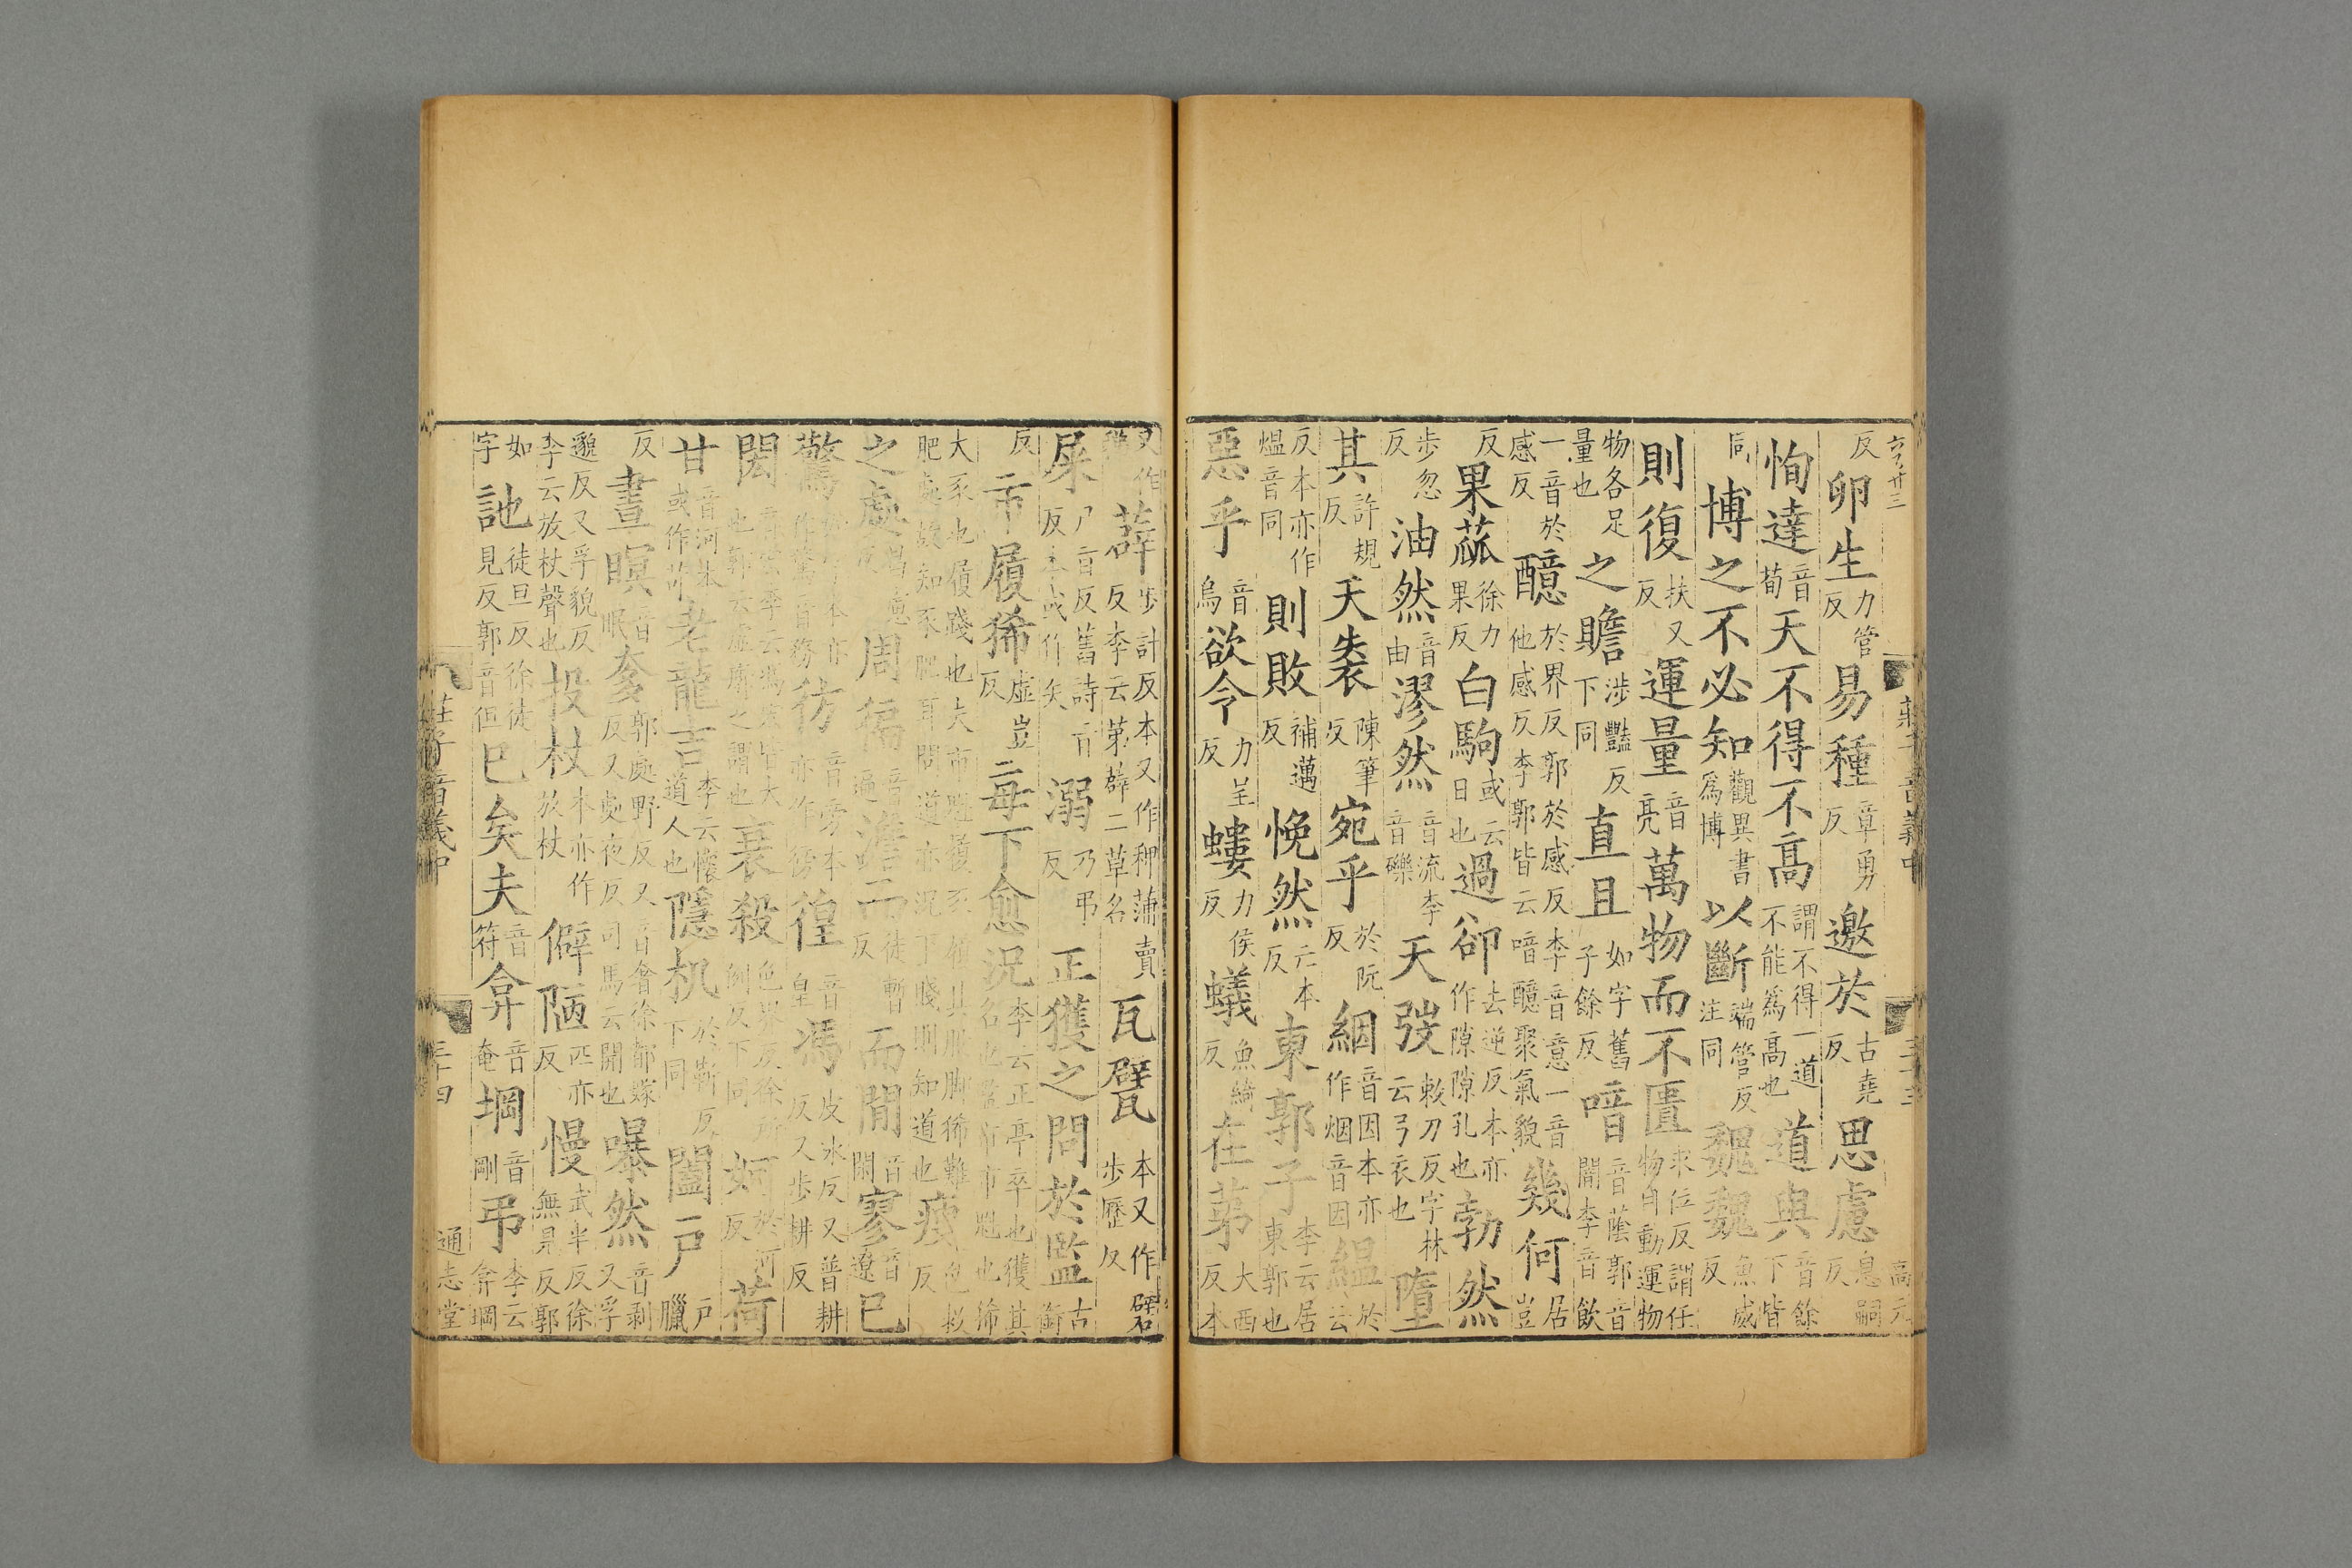 反卵生力管反易種章勇反邀於古堯反思慮息嗣反
恂達音荀天不得不高謂不得一道不能為高也道與音餘下皆
同博之不必知觀異書為博以斷端管反注同魏魏魚威反
則復扶又反運量音亮萬物而不匱求位反謂任物自動運物
物各足量也之贍涉豔反下同直且如字舊子餘反喑音蔭郭音闇李音飲
一音於感反醷於界反郭於感反李音意一音他感反李郭皆云喑醷聚氣貌幾何居豈
反果蓏徐力果反白駒或云日也過郤去逆反本亦作隙隙孔也勃然
步忽反油然音由漻然音流李音礫天弢敕刀反字林云弓衣也墮
其許規反天袠陳筆反宛乎於阮反絪音因本亦作烟音因縕於云
反本亦作熅音同則敗補邁反悗然亡本反東郭子李云居東郭也
惡乎音烏欲令力呈反螻力侯反蟻魚綺反在苐大西反本
又作薜步計反本又作稗蒲賣反李云苐薜二草名瓦甓本又作礕步歷反
屎尸旨反舊詩旨反本或作矢溺乃弔反正獲之問於監古銜
反市履狶虛豈反每下愈況李云正亭卒也獲其名也監市市魁也狶
大豕也履踐也夫市魁履豕履其股脚狶難肥處故知豕肥耳問道亦況下賤則知道也疲
之處昌慮反周徧音遍澹而徒暫反而閒音閑寥音遼已
彷音旁本亦作徬徨音皇馮皮冰反又普耕反又步耕反
閎衰殺色界反徐所例反下同妸於河反荷
甘音河本或作苛老龍吉李云懷道人也隱机於靳反下同闔戶戶臘
反晝瞑音眠奓郭處野反又音奢徐都嫁反又處夜反司馬云開也曝然音剥又孚
邈反又孚貌反李云放杖聲也投杖本亦作放杖僻陋匹亦反慢武半反徐無旦反郭
如字訑徒旦反徐徒見反郭音但已矣夫音符弇音奄堈音剛弔李云弇堈
莊子音義中 三十四 通志堂